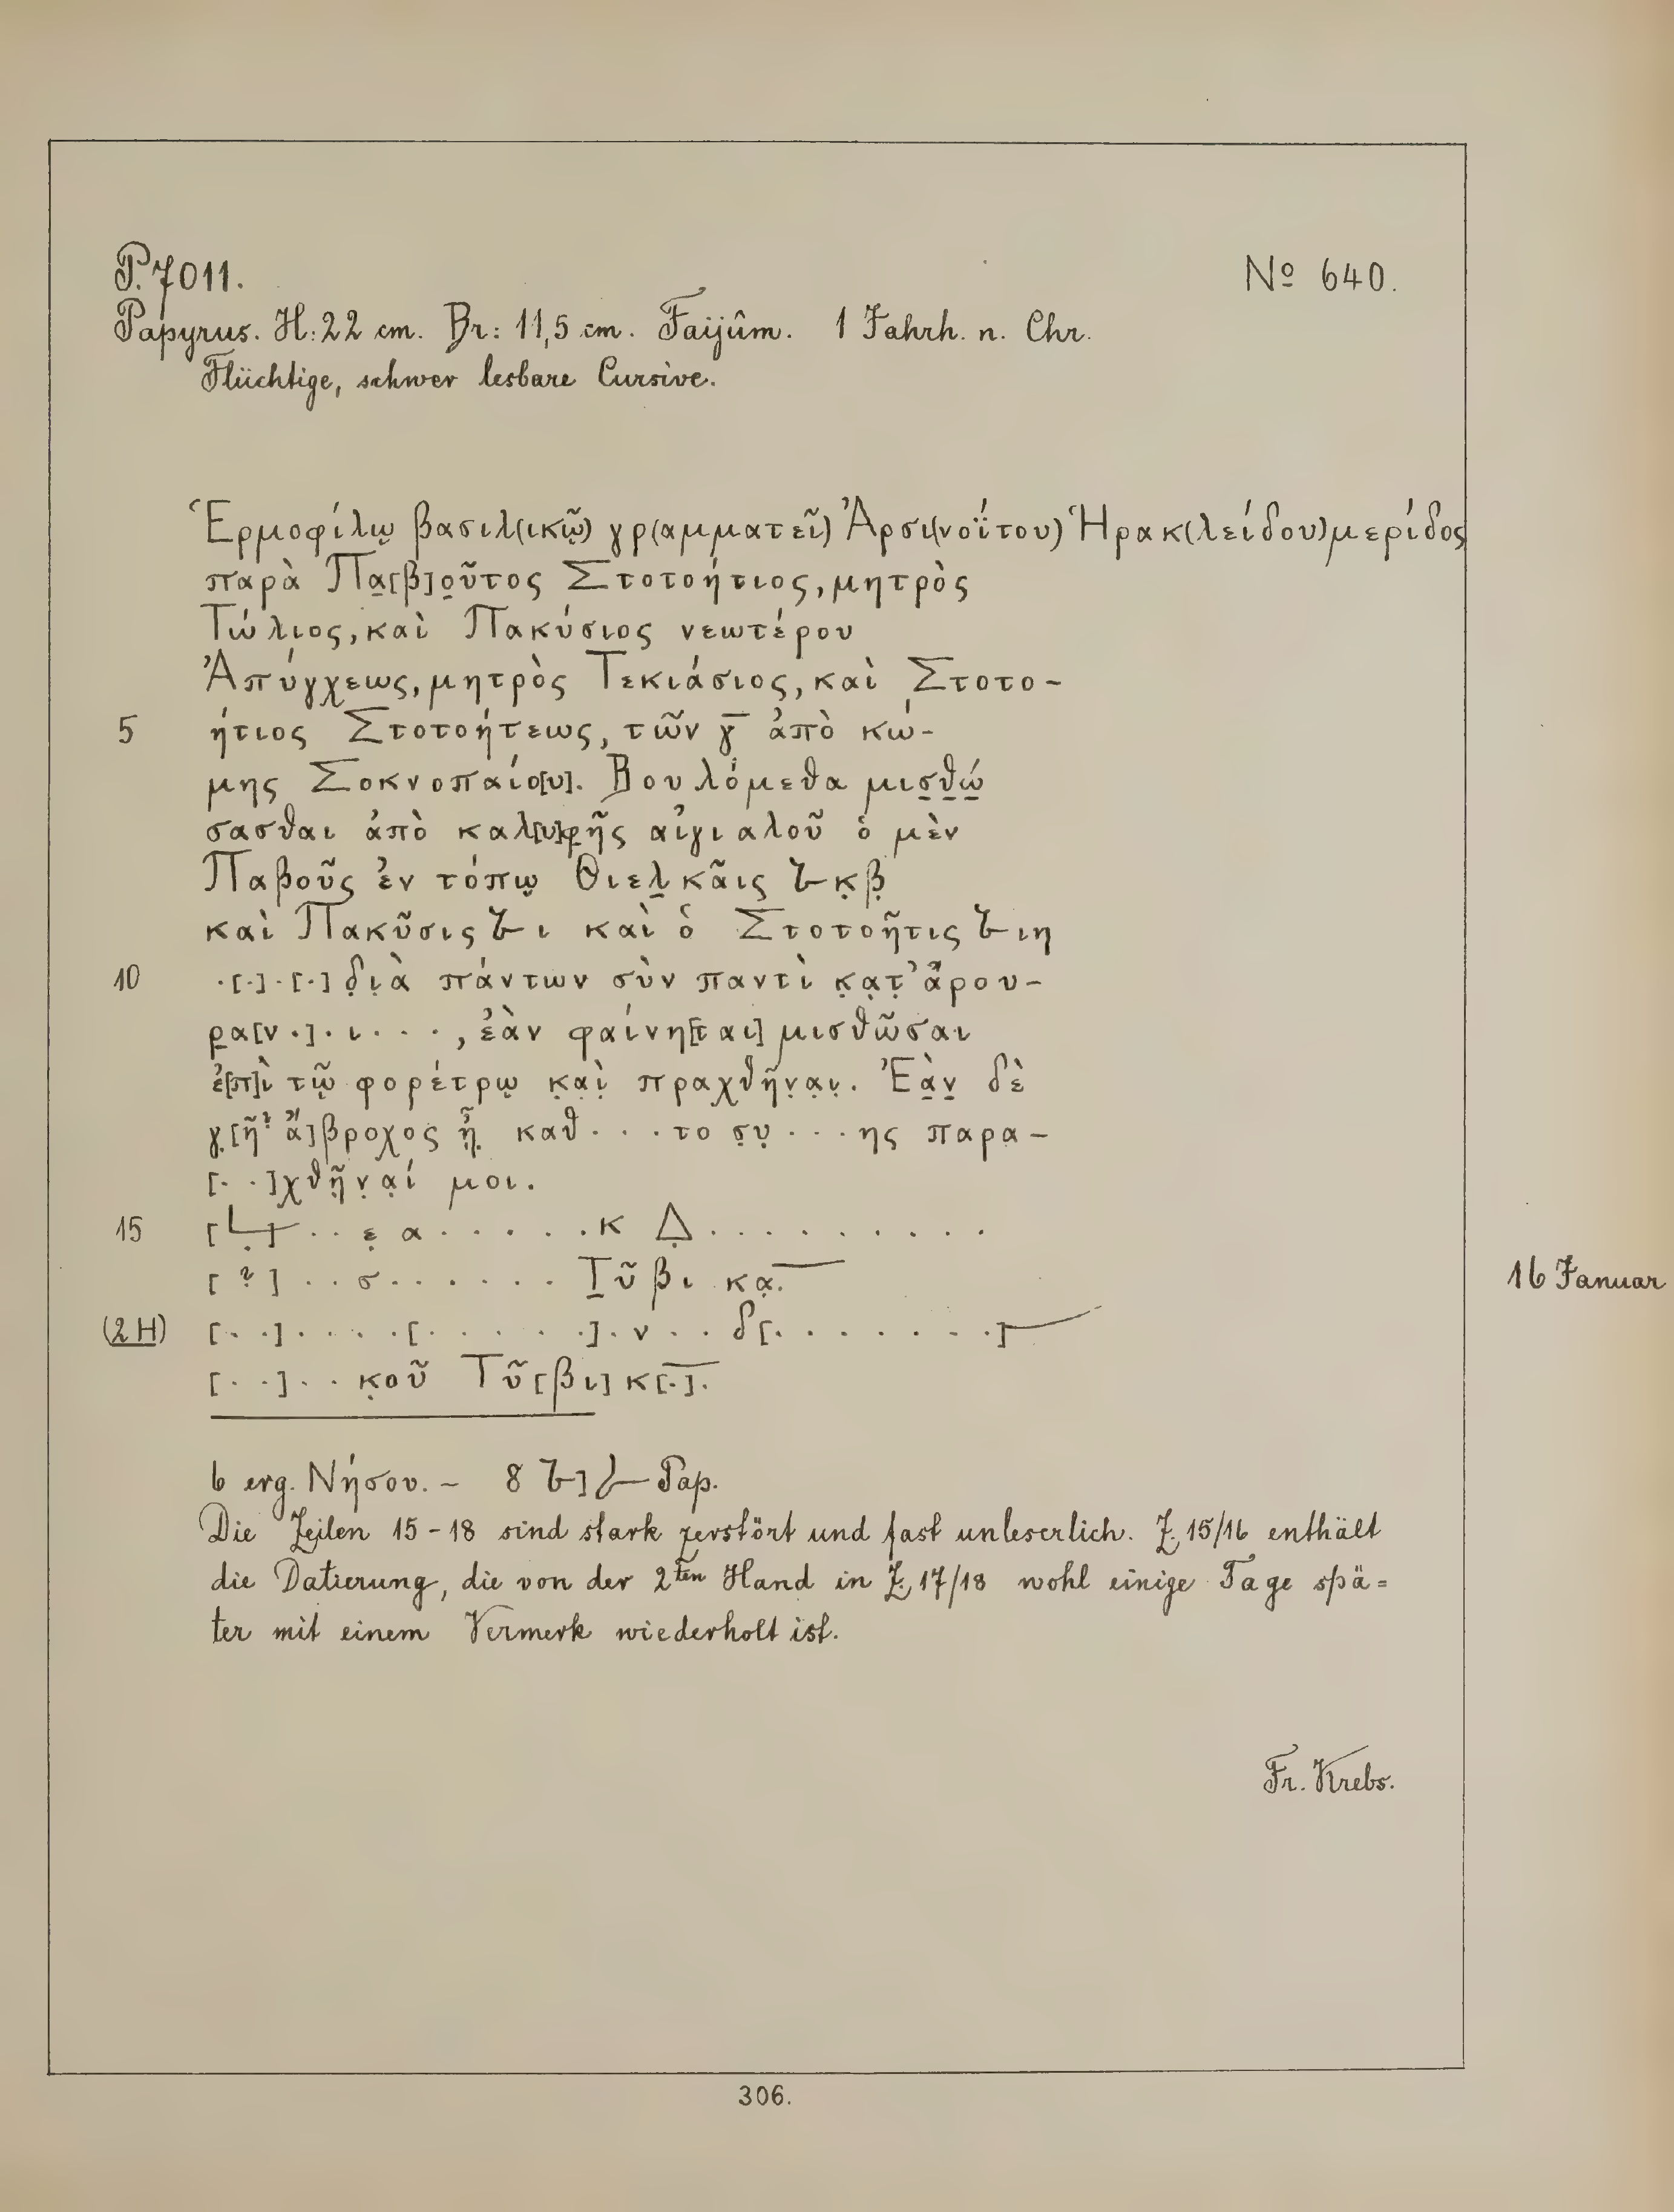 P. 7011.
Nº 640.
Papyrus. H: 22 cm. Br: 11,5 cm. Faijûm. 1 Jahrh. n. Chr.
Flüchtige, schwer lesbare Cursive.
Ἑρμοφίλῳ βασιλ(ικῷ) γρ(αμματεῖ) Ἀρσι(νοΐτου) Ἡρακ(λείδου) μερίδος
παρὰ Πα̣[β]ο̣ῦτος Στοτοήτιος, μητρὸς
Τώλιος, καὶ Πακύσιος νεωτέρου
Ἀπύγχεως, μητρὸς Τεκιάσιος, καὶ Στοτο-
5 ήτιος Στοτοήτεως, τῶν γ̅ ἀπὸ κώ-
μης Σοκνοπαίο[υ]. Βουλόμεθα μισ̣θ̣ώ̣
σασθαι ἀπὸ καλ[υ]φῆς αἰγιαλοῦ ὁ μὲν
Παβοῦς ἐν τόπῳ Θιελ̣κᾶις 𐅹 κ̣β̣
καὶ Πακῦσις 𐅹 ι καὶ ὁ Στοτοῆτις 𐅹 ιη
10 ·[·]·[·] δ̣ι̣ὰ πάντων σὺν παντὶ κ̣α̣τ̣’ ἄρου-
ρα̣[ν ·]·ι···, ἐὰν φαίνη[ται] μισθῶσαι
ἐ[π]ὶ τῷ φορέτρῳ κ̣α̣ὶ̣ πραχθῆν̣α̣ι̣. Ἐὰ̣ν̣ δὲ
γ̣[ῆ? ἄ]βροχος ᾖ̣ καθ···το σ̣υ̣···ης παρα-
[··]χθῆ̣ν̣α̣ί μοι.
15 [L]··ε̣ α······κ Δ̣·········
[?]··σ······ Τ̣ῦβι κα̣.
16 Januar
(2 H) [··]····[······]·ν··δ[·······]
[··]··κ̣οῦ Τῦ[βι] κ[·].
6 erg. Νήσου. – 8 𐅹] 𐅹 Pap.
Die Zeilen 15-18 sind stark zerstört und fast unleserlich. Z. 15/16 enthält
die Datierung, die von der 2ten Hand in Z. 17/18 wohl einige Tage spä=
ter mit einem Vermerk wiederholt ist.
Fr. Krebs.
306.